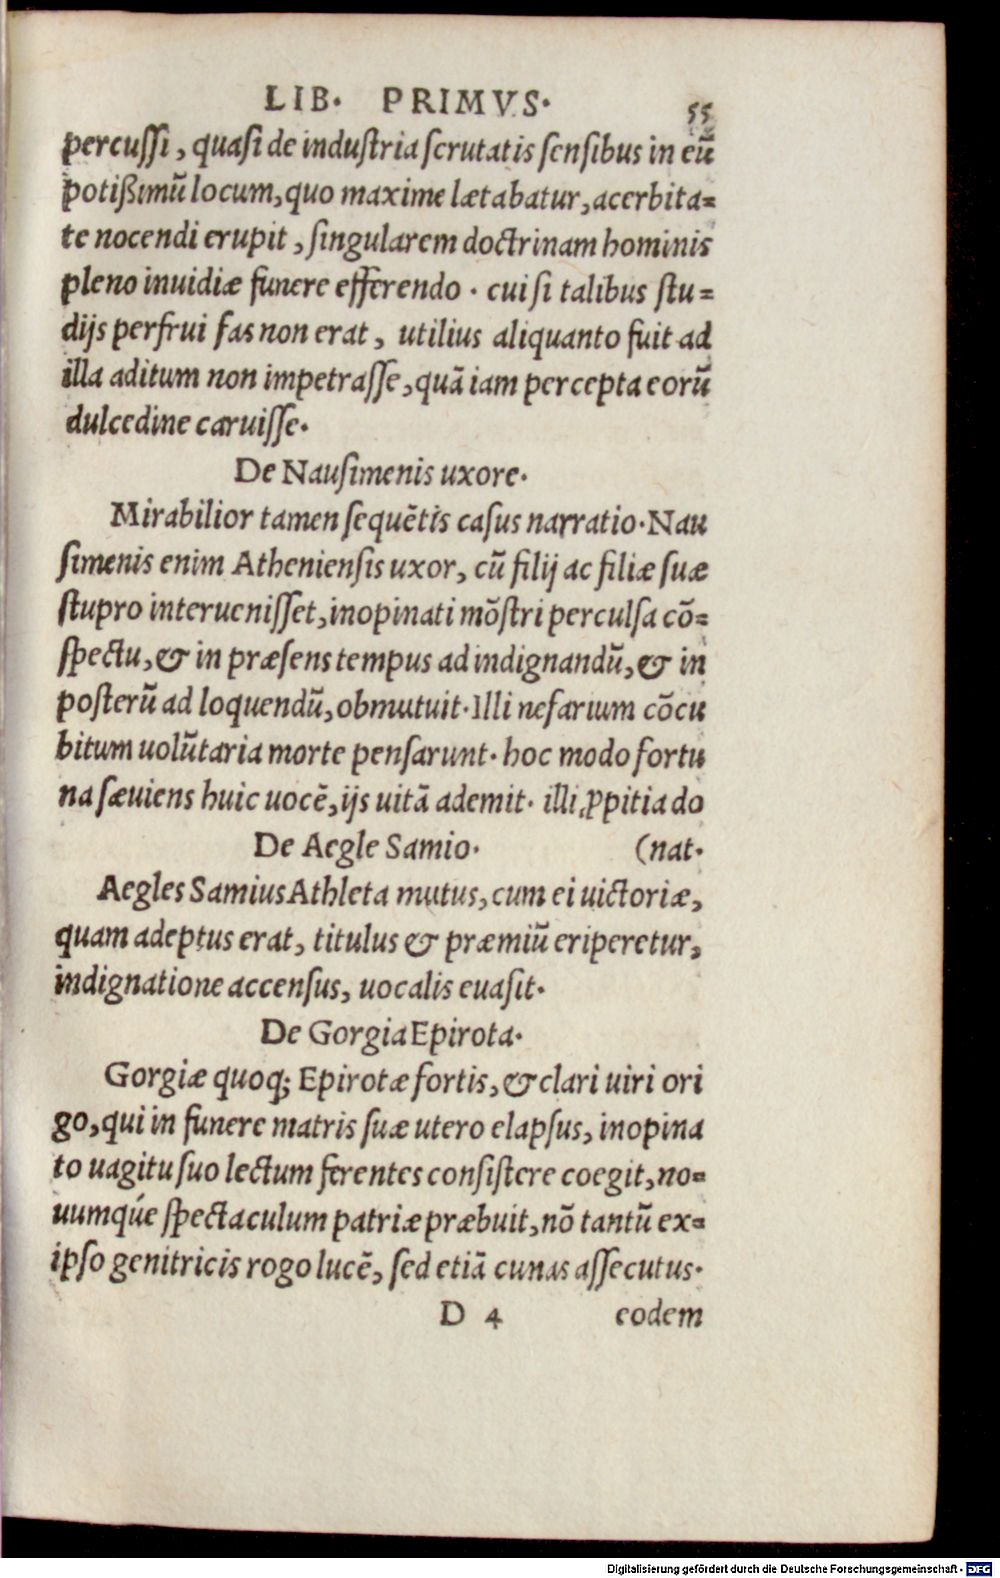 LIB. PRIMVS. 55
percussi, quasi de industria scrutatis sensibus in eũ
potißimũ locum, quo maxime lætabatur, acerbita=
te nocendi erupit, singularem doctrinam hominis
pleno inuidiæ funere efferendo. cui si talibus stu=
dijs perfrui fas non erat, utilius aliquanto fuit ad
illa aditum non impetrasse, quã iam percepta eorũ
dulcedine caruisse.
De Nausimenis uxore.
Mirabilior tamen sequẽtis casus narratio. Nau
simenis enim Atheniensis uxor, cũ filij ac filiæ suæ
stupro interuenisset, inopinati mõstri perculsa cõ=
spectu, & in præsens tempus ad indignandũ, & in
posterũ ad loquendũ, obmutuit. Illi nefarium cõcu
bitum uolũtaria morte pensarunt. hoc modo fortu
na sæuiens huic uocẽ, ijs uitã ademit. illi ꝓpitia do
De Aegle Samio. (nat.
Aegles Samius Athleta mutus, cum ei uictoriæ,
quam adeptus erat, titulus & præmiũ eriperetur,
indignatione accensus, uocalis euasit.
De Gorgia Epirota.
Gorgiæ quoq; Epirotæ fortis, & clari uiri ori
go, qui in funere matris suæ utero elapsus, inopina
to uagitu suo lectum ferentes consistere coegit, no=
uumqúe spectaculum patriæ præbuit, nõ tantũ ex=
ipso genitricis rogo lucẽ, sed etiã cunas assecutus.
D 4 eodem
Digitalisierung gefördert durch die Deutsche Forschungsgemeinschaft - DFG